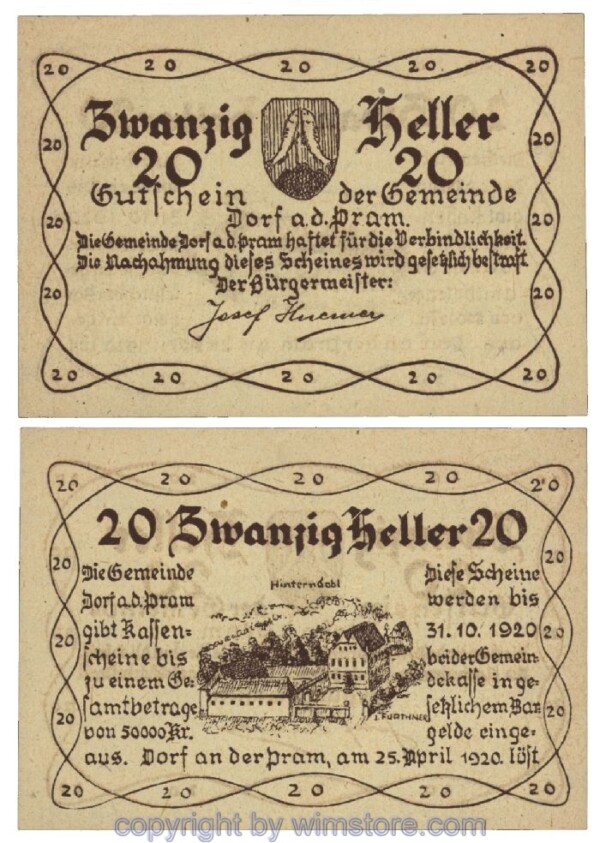 20 20 20 20 20
Zwanzig Heller
20 20
20 20
Gutschein der Gemeinde
Dorf a.d. Pram.
Die Gemeinde Dorf a.d. Pram haftet für die Verbindlichkeit.
Die Nachahmung dieses Scheines wird gesetzlich bestraft
Der Bürgermeister:
20 20
20 20
Josef
20 20
20 20 20 20 20
20 20 20 20 20
20 Zwanzig Heller 20
20 20
Hinterndobl
Die Gemeinde
Dorf a.d. Pram
gibt Kassen-
scheine bis
zu einem Ge-
samtbetrage
von 50000 Kr.
Diese Scheine
werden bis
31.10.1920
bei der Gemein-
dekasse in ge-
setzlichem Bar-
gelde einge-
20 20
20 20
J. FURTHNER
aus. Dorf an der Pram, am 25. April 1920. löst
20 20 20 20 20
copyright by wimstore.com